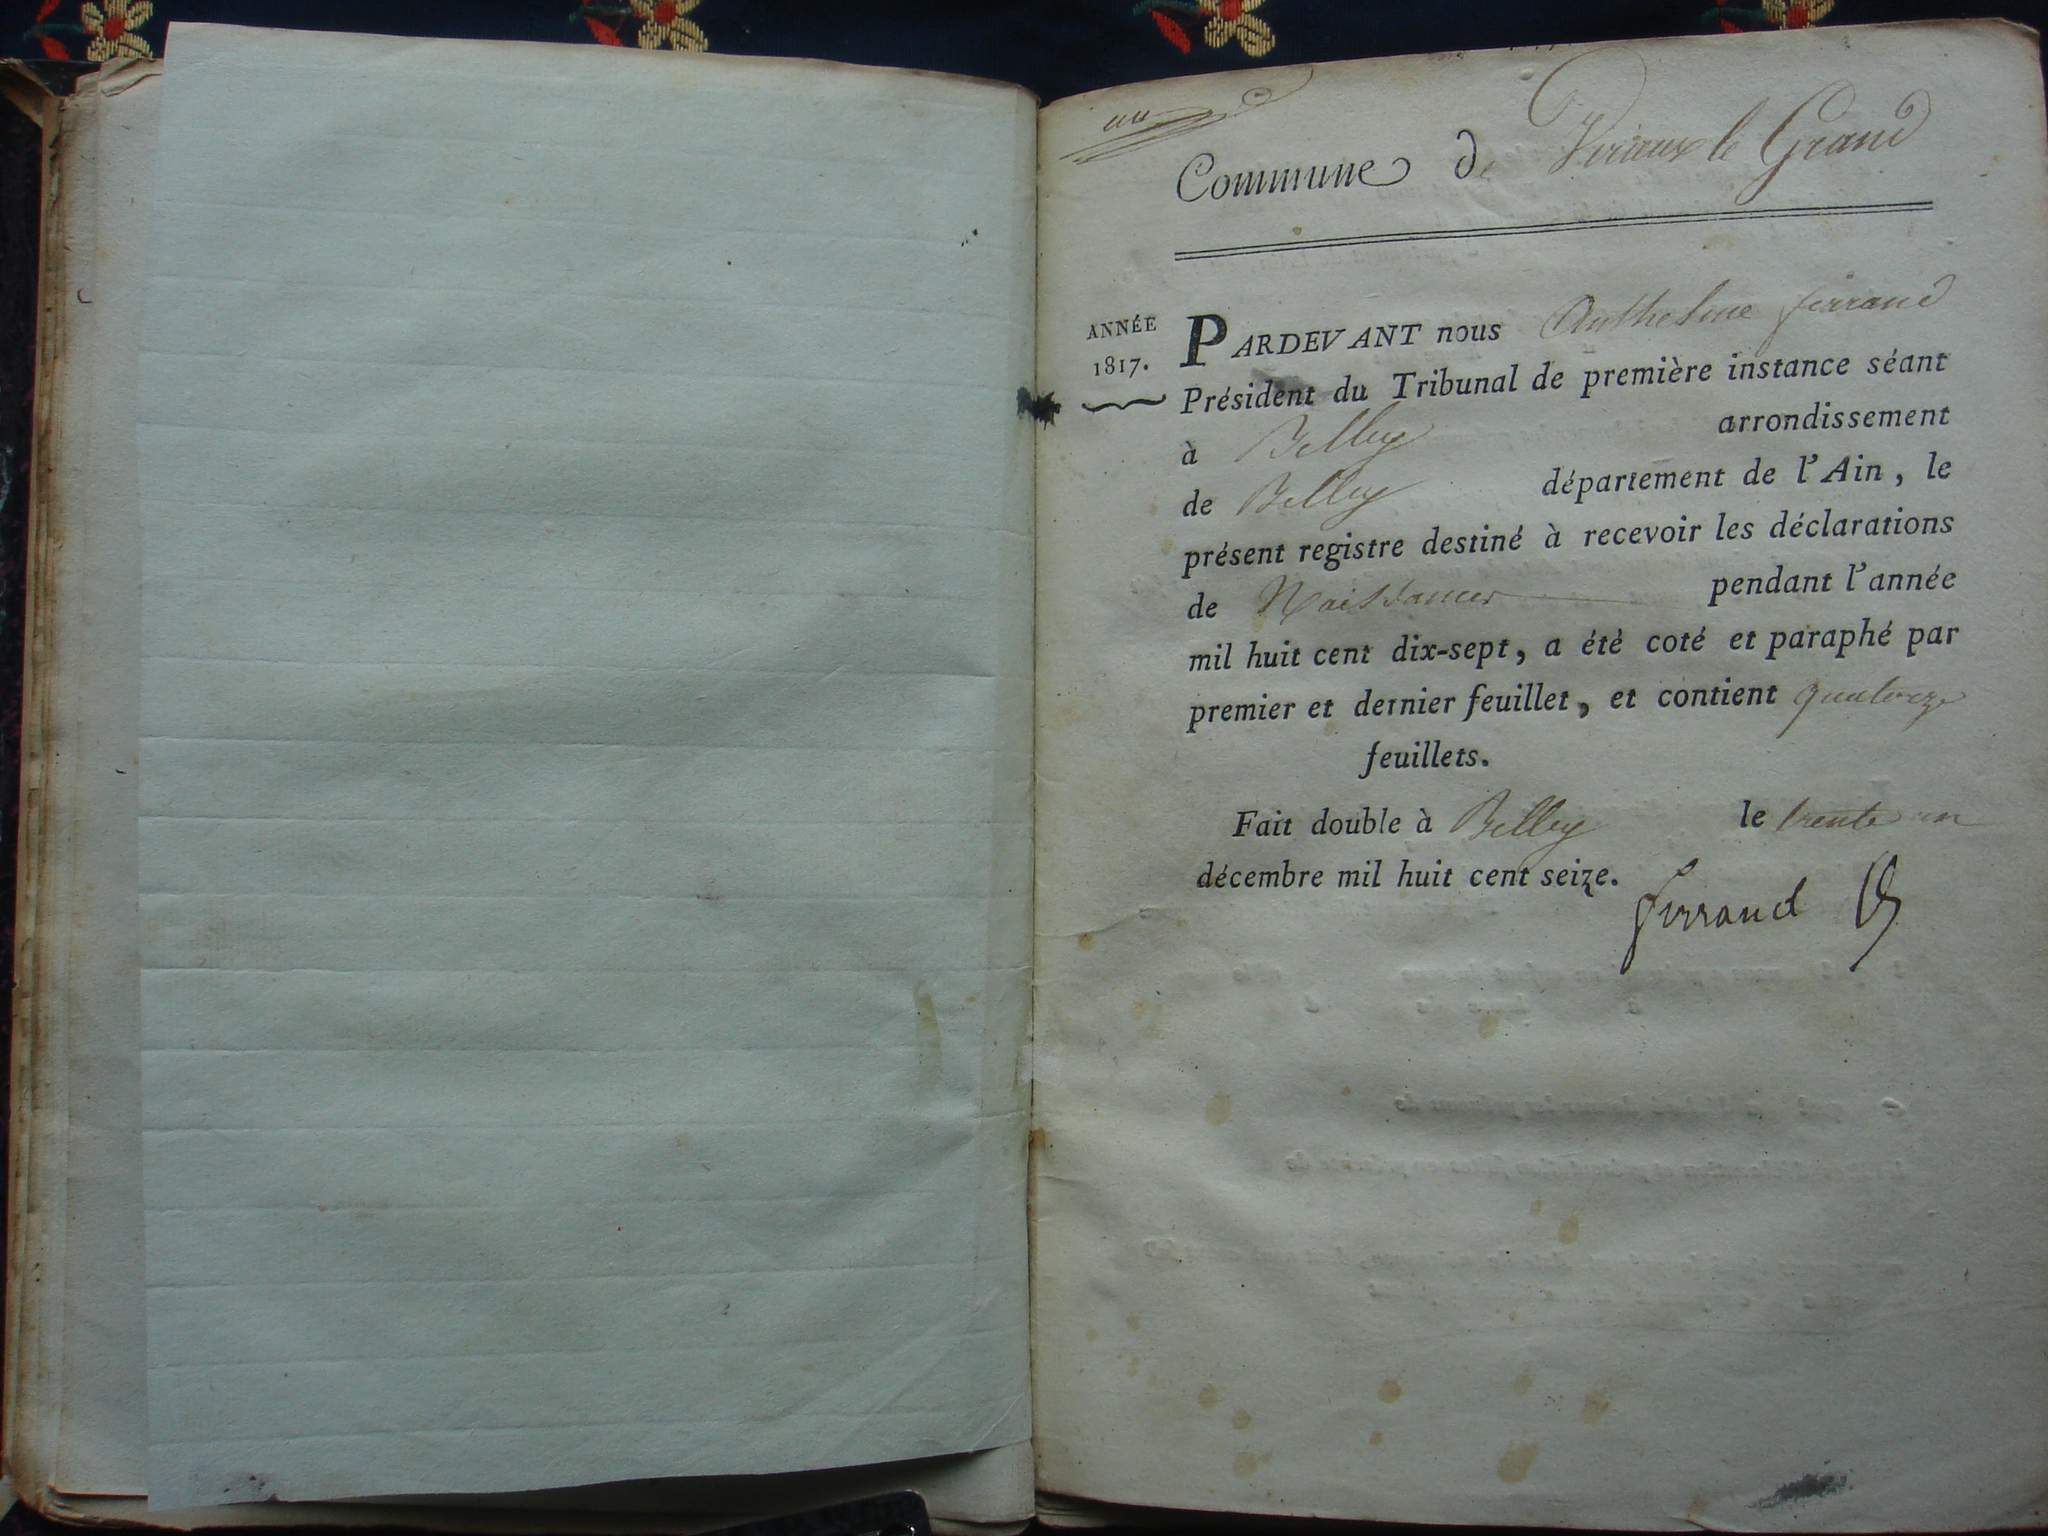 un
Commune de Virieux le Grand
ANNÉE
1817.
PARDEVANT nous Anthelme ferrand
Président du Tribunal de première instance séant
à Belley arrondissement
de Belley département de l'Ain, le
présent registre destiné à recevoir les déclarations
de Naissances pendant l'année
mil huit cent dix-sept, a été coté et paraphé par
premier et dernier feuillet, et contient quatorze
feuillets.
Fait double à Belley le trente un
décembre mil huit cent seize.
ferrand